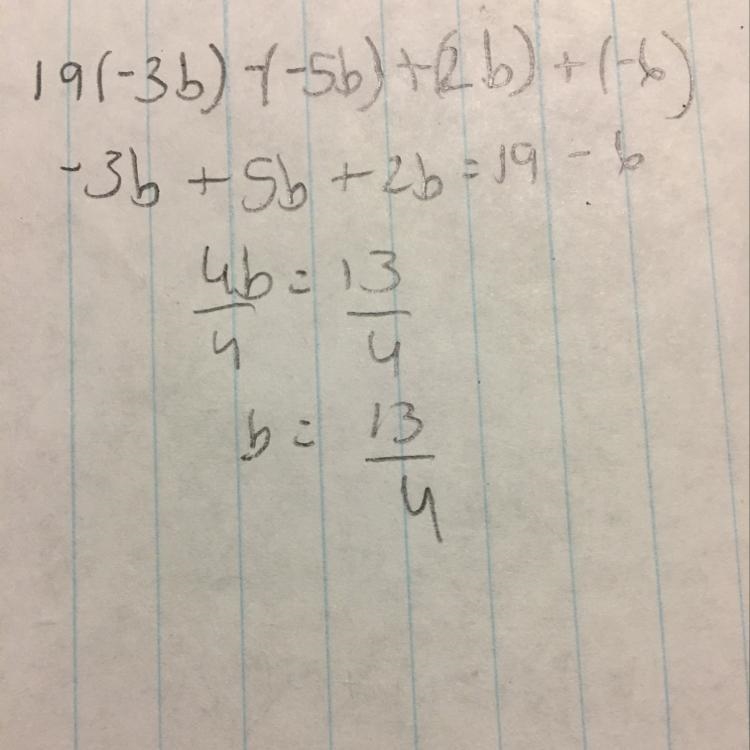 19(-3b) -(-5b) + (2b) + (-6)
-3b + 5b + 2b = 19 - 6
4b = 13
4 4
b = 13
4